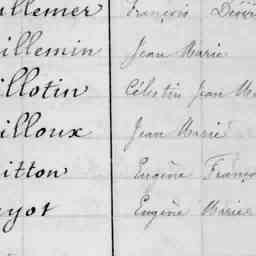 illemer François Désiré
illemin Jean Marie
illotin Célestin Jean Ma
illoux Jean Marie
itton Eugène Franço
yot Eugène Marie